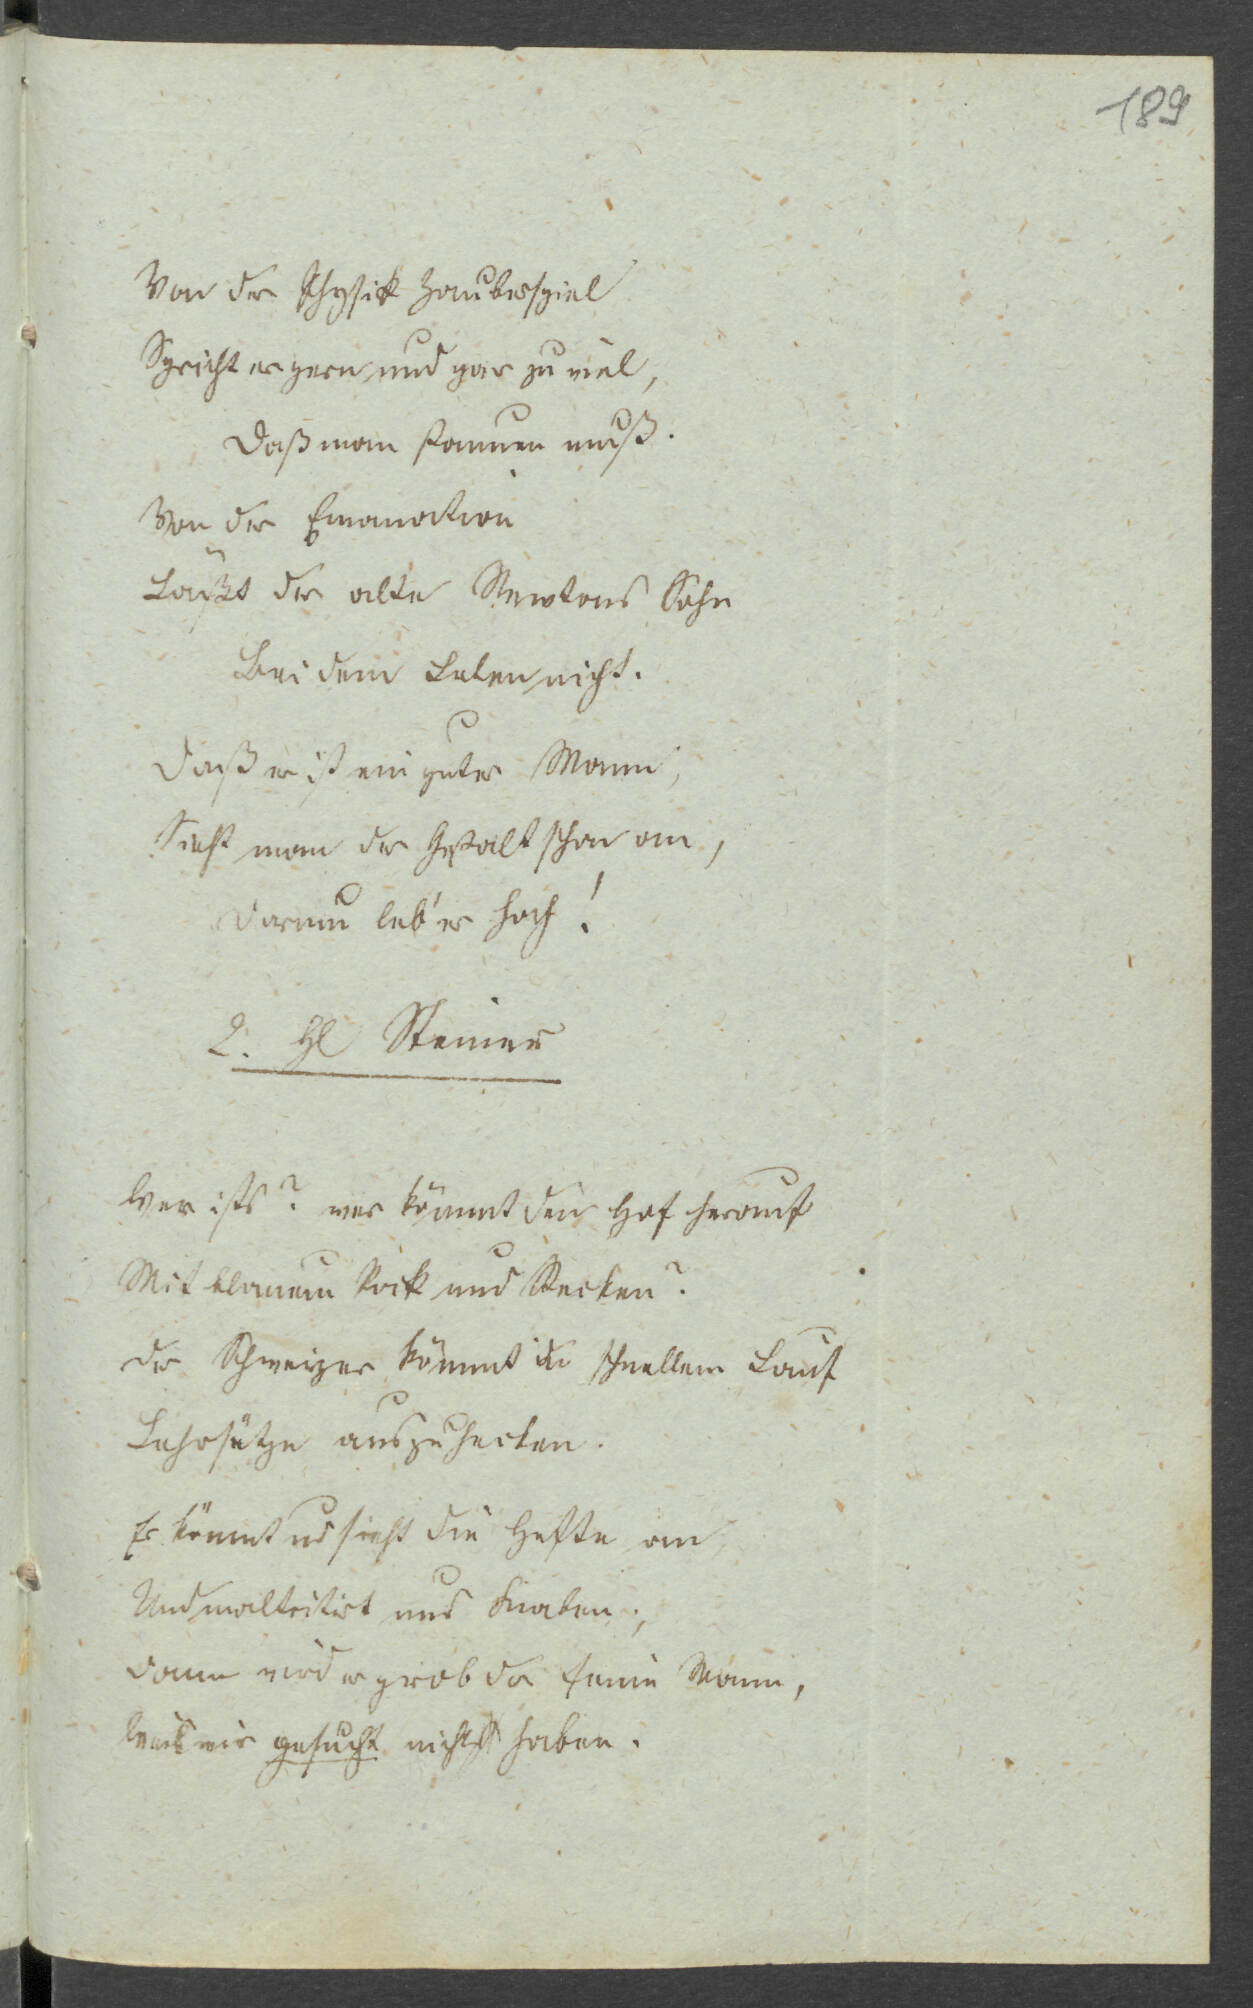 189
Von der Physik Zauberspiel
Spricht er gern und gar zu viel,
Daß man staunen muß.
Von der Emanation
Läßt der alte Newtons Sohn
Bei dem Leben nicht.
Daß er ist ein guter Mann,
Sieht man der Gestalt schon an,
Darum leb' er hoch!
2. H Steiner
Wer ists? wer kömmt den Hof herauf
Mit blauem Rock und Stecken?
Der Schweizer kömmt in schnellem Lauf
Lehrsätze auszuhecken.
Er kömmt und sieht die Hefte an
Und maltritirt uns Knaben;
Dann wird er grob der feine Mann,
Weil wir gesucht nichts haben.